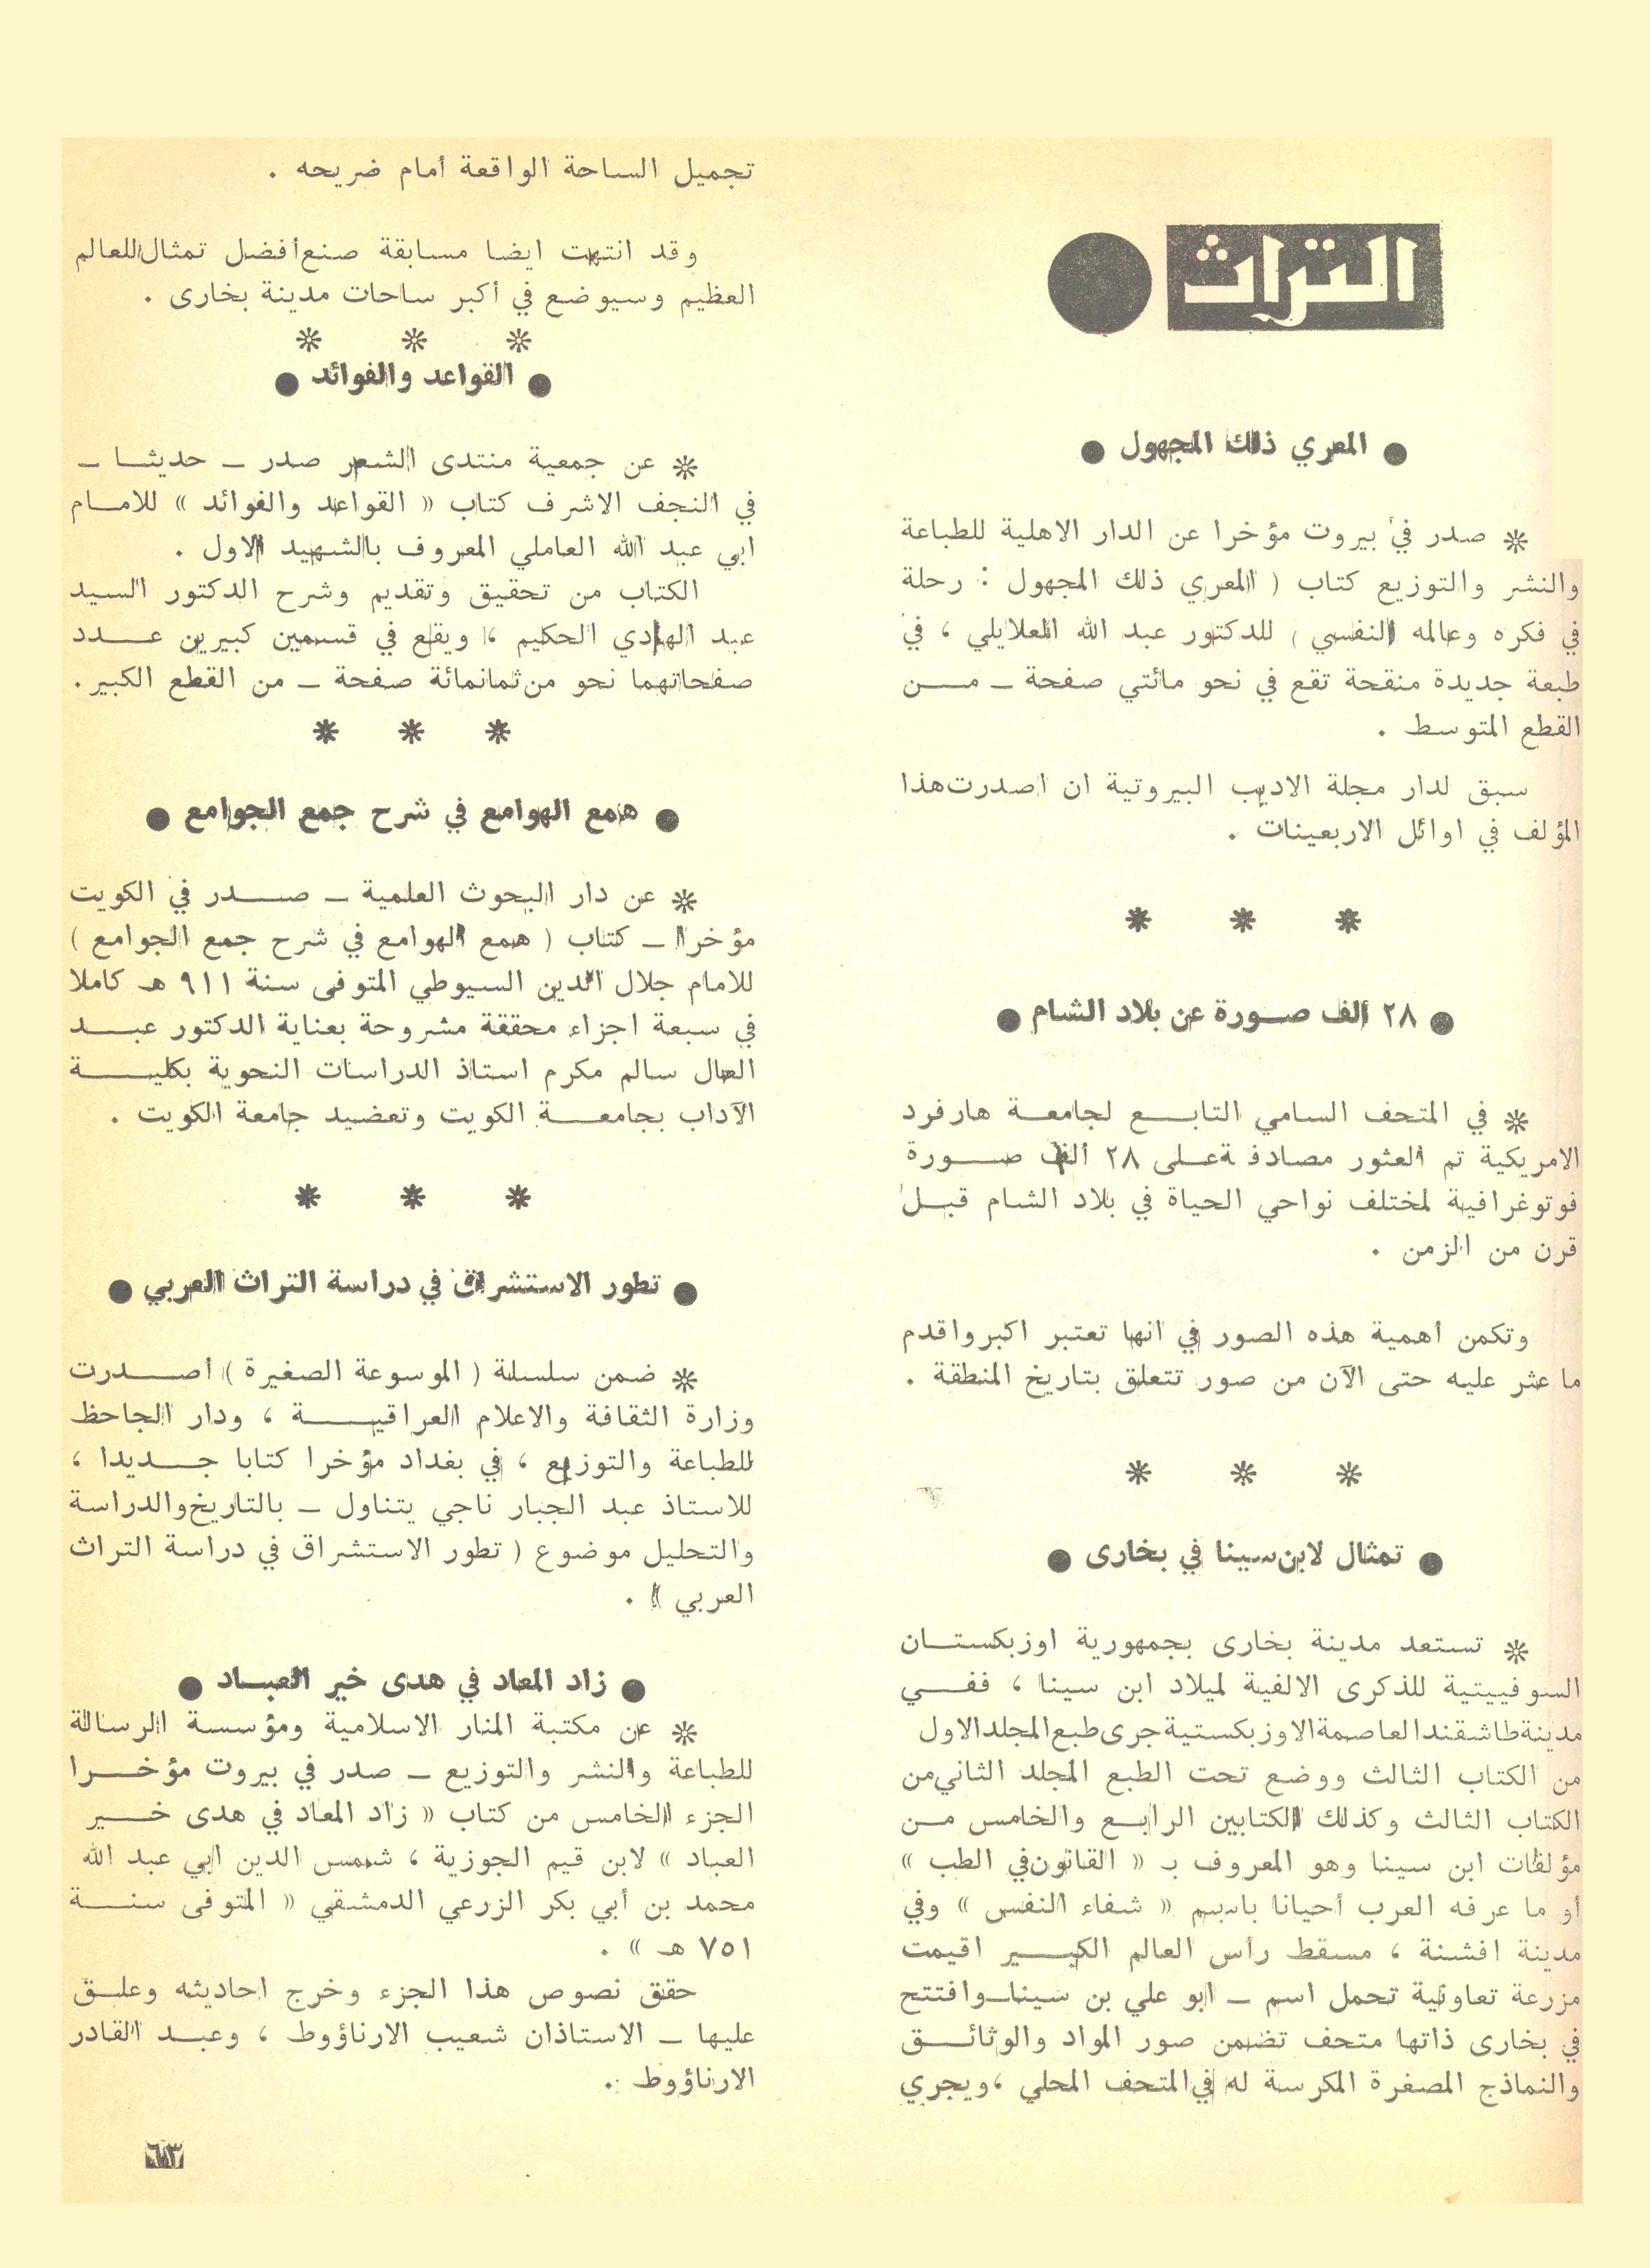 التراث ●
● المعري ذلك المجهول ●
* صدر في بيروت مؤخرا عن الدار الاهلية للطباعة
والنشر والتوزيع كتاب ( المعري ذلك المجهول : رحلة
في فكره وعالمه النفسي ) للدكتور عبد الله العلايلي ، في
طبعة جديدة منقحة تقع في نحو مائتي صفحة ـ مـن
القطع المتوسط .
سبق لدار مجلة الاديب البيروتية ان اصدرت هذا
المؤلف في اوائل الاربعينات .
* * *
● ٢٨ ألف صـورة عن بلاد الشام ●
* في المتحف السامي التابـع لجامعـة هارفرد
الامريكية تم العثور مصادفة علـى ٢٨ ألف صـورة
فوتوغرافية لمختلف نواحي الحياة في بلاد الشام قبـل
قرن من الزمن .
وتكمن أهمية هذه الصور في انها تعتبر اكبر واقدم
ما عثر عليه حتى الآن من صور تتعلق بتاريخ المنطقة .
* * *
● تمثال لابن سينا في بخارى ●
* تستعد مدينة بخارى بجمهورية اوزبكستـان
السوفييتية للذكرى الالفية لميلاد ابن سينا ، ففـي
مدينة طاشقند العاصمة الاوزبكستية جرى طبع المجلد الاول
من الكتاب الثالث ووضع تحت الطبع المجلد الثاني من
الكتاب الثالث وكذلك الكتابين الرابـع والخامس مـن
مؤلفات ابن سينا وهو المعروف بـ « القانون في الطب »
أو ما عرفه العرب أحيانا باسم « شفاء النفس » وفي
مدينة افشنة ، مسقط رأس العالم الكبـير اقيمت
مزرعة تعاونية تحمل اسم ـ ابو علي بن سينا ـ وافتتح
في بخارى ذاتها متحف تضمن صور المواد والوثائـق
والنماذج المصغرة المكرسة له في المتحف المحلي ، ويجري
تجميل الساحة الواقعة أمام ضريحه .
وقد انتهت ايضا مسابقة صنع أفضل تمثال للعالم
العظيم وسيوضع في أكبر ساحات مدينة بخارى .
* * *
● القواعد والفوائد ●
* عن جمعية منتدى الشعر صدر ـ حديثـا ـ
في النجف الاشرف كتاب « القواعد والفوائد » للامـام
ابي عبد الله العاملي المعروف بالشهيد الاول .
الكتاب من تحقيق وتقديم وشرح الدكتور السيد
عبد الهادي الحكيم ، ويقع في قسمين كبيرين عـدد
صفحاتهما نحو من ثمانمائة صفحة ـ من القطع الكبير .
* * *
● همع الهوامع في شرح جمع الجوامع ●
* عن دار البحوث العلمية ـ صـدر في الكويت
مؤخرا ـ كتاب ( همع الهوامع في شرح جمع الجوامع )
للامام جلال الدين السيوطي المتوفى سنة ٩١١ هـ كاملا
في سبعة اجزاء محققة مشروحة بعناية الدكتور عبـد
العال سالم مكرم استاذ الدراسات النحوية بكليـة
الآداب بجامعـة الكويت وتعضيد جامعة الكويت .
* * *
● تطور الاستشراق في دراسة التراث العربي ●
* ضمن سلسلة ( الموسوعة الصغيرة ) أصـدرت
وزارة الثقافة والاعلام العراقيـة ، ودار الجاحظ
للطباعة والتوزيع ، في بغداد مؤخرا كتابا جـديدا ،
للاستاذ عبد الجبار ناجي يتناول ـ بالتاريخ والدراسة
والتحليل موضوع ( تطور الاستشراق في دراسة التراث
العربي ) .
● زاد المعاد في هدى خير العبـاد ●
* عن مكتبة المنار الاسلامية ومؤسسة الرسالة
للطباعة والنشر والتوزيع ـ صدر في بيروت مؤخـرا
الجزء الخامس من كتاب « زاد المعاد في هدى خـير
العباد » لابن قيم الجوزية ، شمس الدين ابي عبد الله
محمد بن أبي بكر الزرعي الدمشقي « المتوفى سنـة
٧٥١ هـ » .
حقق نصوص هذا الجزء وخرج احاديثه وعلـق
عليها ـ الاستاذان شعيب الارناؤوط ، وعبـد القادر
الارناؤوط .
٦٣